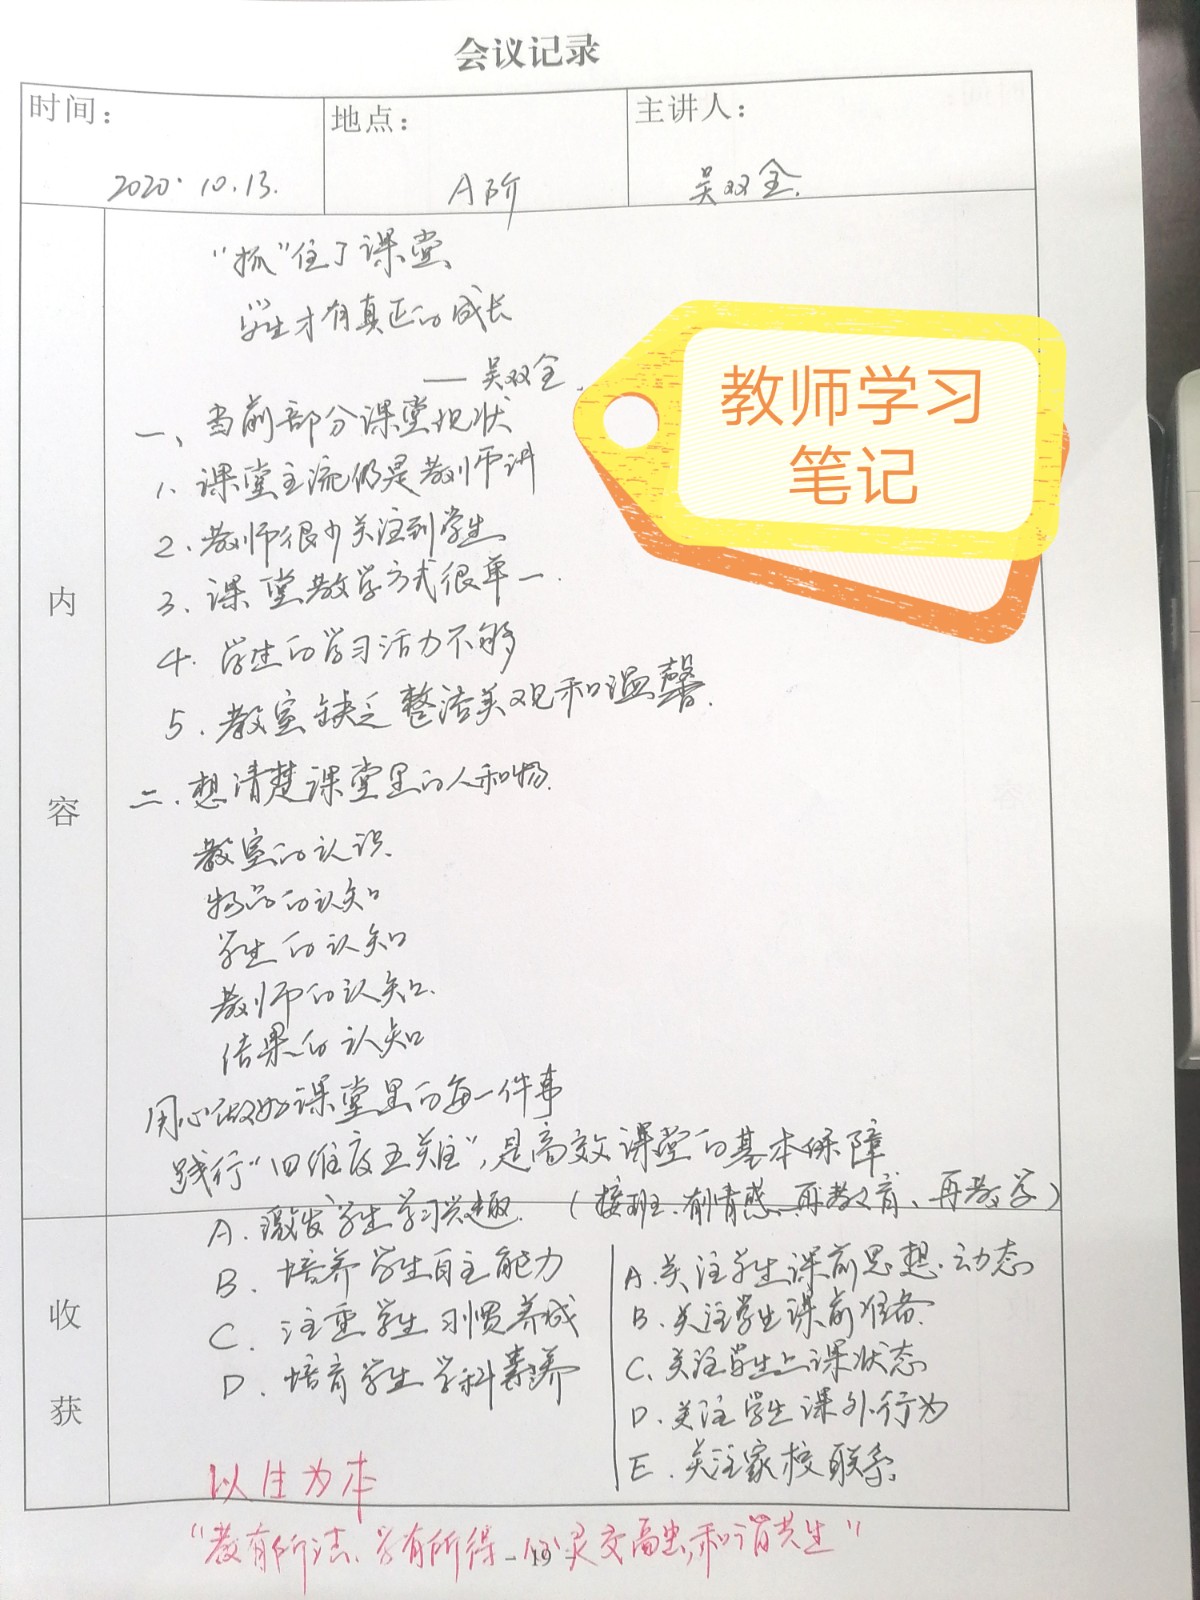 会议记录
时间：
地点：
主讲人：
2020.10.13.
A阶
吴双全.
“抓”住了课堂、
学生才有真正的成长
——吴双全.
教师学习
笔记
一、当前部分课堂现状
1、课堂主流仍是教师讲
2、教师很少关注到学生
3、课堂教学方式很单一.
4、学生的学习活力不够
5、教室缺乏整洁美观和温馨.
二、想清楚课堂里的人和物.
教室的认识.
物品的认知
学生的认知
教师的认知.
结果的认知
用心做好课堂里的每一件事
践行“四维度五关注”，是高效课堂的基本保障
内
容
A. 激发学生学习兴趣. （接班、有情感、再教育、再教学）
B. 培养学生自主能力
C. 注重学生习惯养成
D. 培育学生学科素养
A. 关注学生课前思想、动态
B. 关注学生课前准备.
C. 关注学生上课状态
D. 关注学生课外行为
E. 关注家校联系.
收
获
以生为本
“教有所法、学有所得 心灵交融 和谐共生”
- 19 -